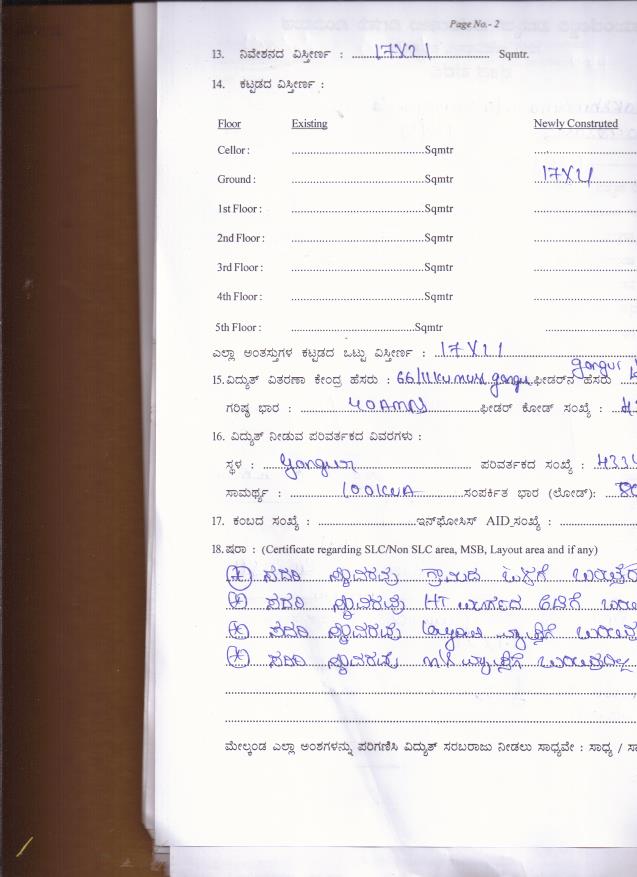 Page No.- 2
13. ನಿವೇಶನದ ವಿಸ್ತೀರ್ಣ : 17X21 Sqmtr.
14. ಕಟ್ಟಡದ ವಿಸ್ತೀರ್ಣ :
Floor Existing Newly Construted
Cellor : Sqmtr
Ground : Sqmtr 17X21
1st Floor : Sqmtr
2nd Floor : Sqmtr
3rd Floor : Sqmtr
4th Floor : Sqmtr
5th Floor : Sqmtr
ಎಲ್ಲಾ ಅಂತಸ್ತುಗಳ ಕಟ್ಟಡದ ಒಟ್ಟು ವಿಸ್ತೀರ್ಣ : 17X21
15. ವಿದ್ಯುತ್ ವಿತರಣಾ ಕೇಂದ್ರ ಹೆಸರು : 66/11 ಫೀಡರ್‌ನ ಹೆಸರು
ಗರಿಷ್ಠ ಭಾರ : ಫೀಡರ್ ಕೋಡ್ ಸಂಖ್ಯೆ :
16. ವಿದ್ಯುತ್ ನೀಡುವ ಪರಿವರ್ತಕದ ವಿವರಗಳು :
ಸ್ಥಳ : ಪರಿವರ್ತಕದ ಸಂಖ್ಯೆ :
ಸಾಮರ್ಥ್ಯ : 100KVA ಸಂಪರ್ಕಿತ ಭಾರ (ಲೋಡ್):
17. ಕಂಬದ ಸಂಖ್ಯೆ : ಇನ್‌ಫೋಸಿಸ್ AID ಸಂಖ್ಯೆ :
18. ಷರಾ : (Certificate regarding SLC/Non SLC area, MSB, Layout area and if any)
ಸದರಿ ಸ್ಥಾವರವು ಗ್ರಾಮದ ಒಳಗೆ
ಸದರಿ ಸ್ಥಾವರವು HT ಮಾರ್ಗದ
ಸದರಿ ಸ್ಥಾವರವು Layout ವ್ಯಾಪ್ತಿಗೆ
ಸದರಿ ಸ್ಥಾವರವು ವ್ಯಾಪ್ತಿಗೆ
ಮೇಲ್ಕಂಡ ಎಲ್ಲಾ ಅಂಶಗಳನ್ನು ಪರಿಗಣಿಸಿ ವಿದ್ಯುತ್ ಸರಬರಾಜು ನೀಡಲು ಸಾಧ್ಯವೇ : ಸಾಧ್ಯ /